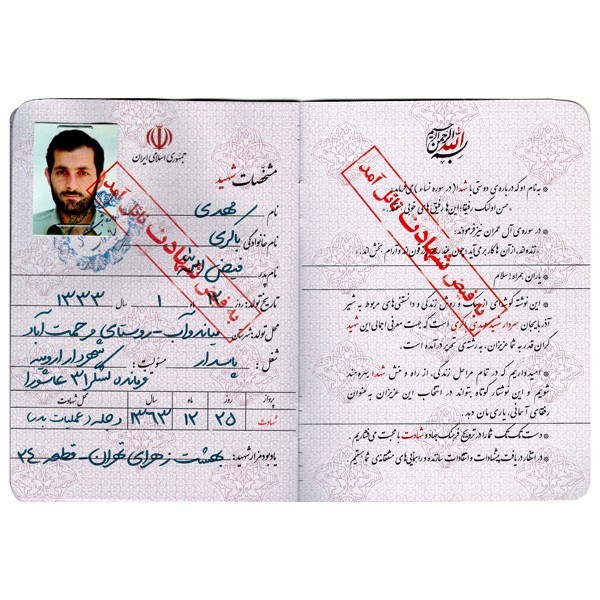 بسم الله الرحمن الرحیم
به نام او که درباره‌ی دوستی با شهدا (در سوره نساء) می‌فرماید
حسن اولئک رفیقا؛ این‌ها رفیق‌های خوبی
در سوره‌ی آل عمران نیز فرموده:
زنده‌اند، از آن‌ها کار برمی‌آید،
یاران همراه! سلام
این نوشته گوشه‌ای از سبک و روش زندگی و دانستنی‌های مربوط به شیر
آذربایجان سردار شهید مهدی باکری است که جهت معرفی اجمالی این شهید
گران‌قدر به شما عزیزان، به رشته‌ی تحریر درآمده است
امیدواریم که در تمام مراحل زندگی، از راه و منش شهدا بهره‌مند
شویم و این گوشه‌نگار کوتاه بتواند در انتخاب این عزیزان به‌عنوان
رفقای آسمانی، یاری‌مان دهد.
دست تک‌تک شما را در ترویج فرهنگ جهاد و شهادت با محبت می‌فشاریم.
در انتظار دریافت پیشنهادات و انتقادات سازنده و راهنمایی‌های مشفقانه‌ی شما هستیم
به فیض شهادت نائل آمد
جمهوری اسلامی ایران
مشخصات شهید
نام مهدی
نام خانوادگی باکری
نام پدر فیض اله
تاریخ تولد: روز ماه ۱ سال ۱۳۳۳
محل تولد: شهرستان میاندوآب - روستای رحمت آباد
شغل: پاسدار مسؤلیت: شهردار ارومیه
فرمانده لشکر ۳۱ عاشورا
پرواز روز ماه سال محل شهادت
شهادت ۲۵ ۱۲ ۱۳۶۳ دجله (عملیات بدر)
یادبود مزار شهید: بهشت زهرای تهران - قطعه ۲۴
به فیض شهادت نائل آمد